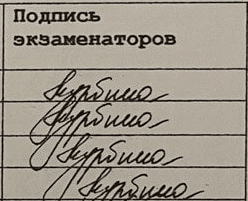 Подпись
экзаменаторов
Курбина
Курбина
Курбина
Курбина